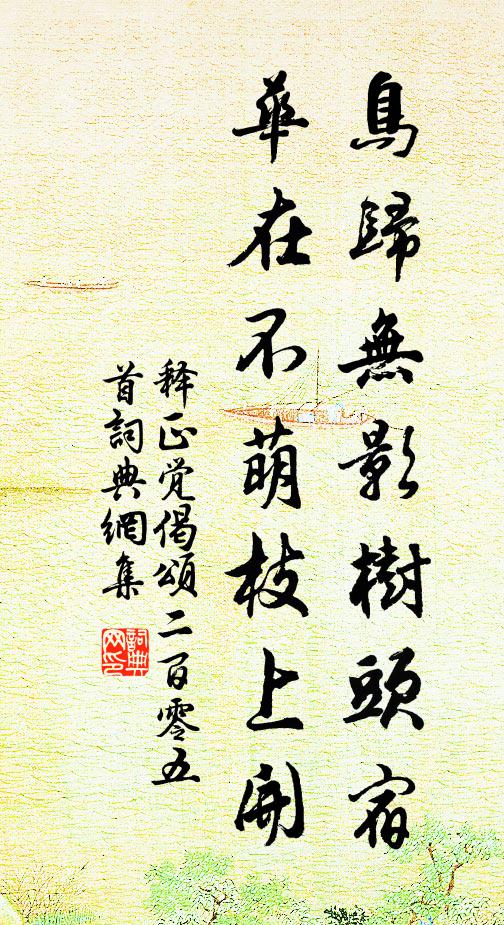 鳥歸無影樹頭宿
華在不萌枝上開
释正觉偈頌二百零五
首詞典網集
詞典网印